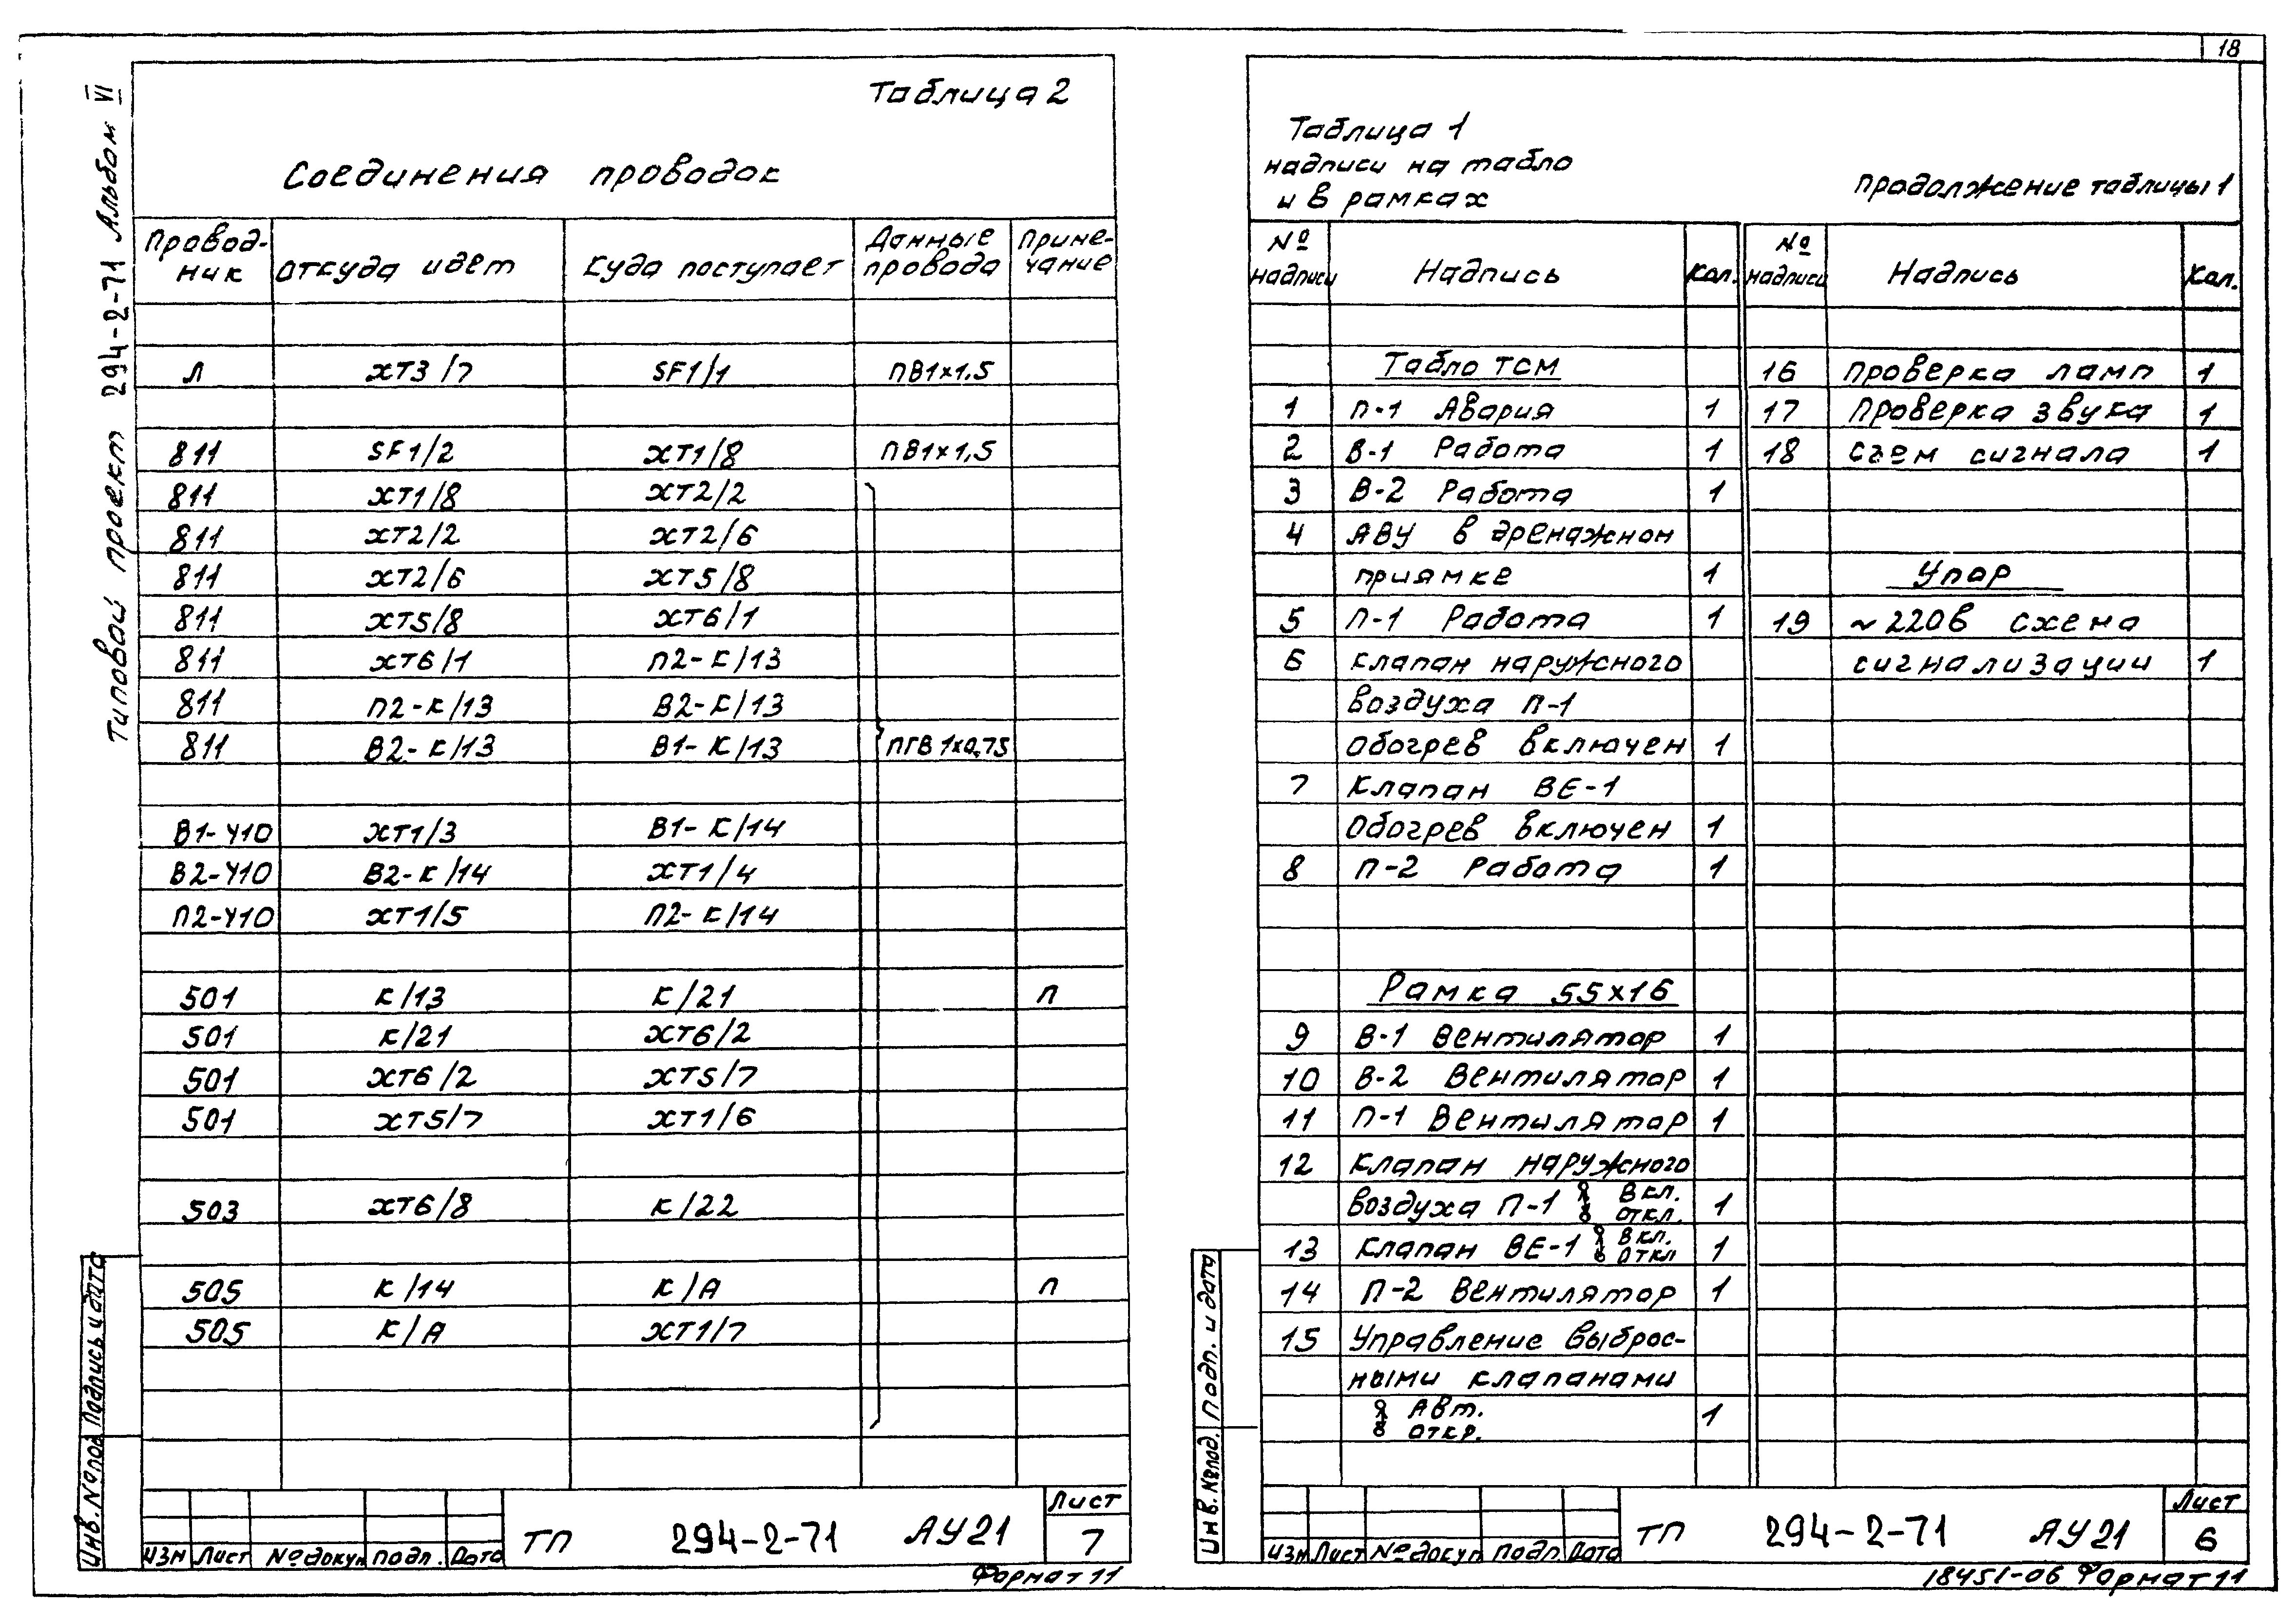 18
Типовой проект 294-2-71 Альбом VI
Таблица 2
Соединения проводок
Проводник | Откуда идет | Куда поступает | Данные провода | Примечание
Л | ХТ3/7 | SF1/1 | ПВ1х1,5
811 | SF1/2 | ХТ1/8 | ПВ1х1,5
811 | ХТ1/8 | ХТ2/2
811 | ХТ2/2 | ХТ2/6
811 | ХТ2/6 | ХТ5/8
811 | ХТ5/8 | ХТ6/1
811 | ХТ6/1 | П2-К/13
811 | П2-К/13 | В2-К/13
811 | В2-К/13 | В1-К/13 | ПГВ 1х0,75
В1-У10 | ХТ1/3 | В1-К/14
В2-У10 | В2-К/14 | ХТ1/4
П2-У10 | ХТ1/5 | П2-К/14
501 | К/13 | К/21 | П
501 | К/21 | ХТ6/2
501 | ХТ6/2 | ХТ5/7
501 | ХТ5/7 | ХТ1/6
503 | ХТ6/8 | К/22
505 | К/14 | К/А | П
505 | К/А | ХТ1/7
Инв. №подл. Подпись и дата
Изм Лист №докум подп. Дата
ТП 294-2-71 АУ21
Лист
7
Формат 11
Таблица 1
надписи на табло
и в рамках
Продолжение таблицы 1
№ надписи | Надпись | Кол.
Табло ТСМ
1 | П-1 Авария | 1
2 | В-1 Работа | 1
3 | В-2 Работа | 1
4 | АВУ в дренажном
приямке | 1
5 | П-1 Работа | 1
6 | Клапан наружного
воздуха П-1
Обогрев включен | 1
7 | Клапан ВЕ-1
Обогрев включен | 1
8 | П-2 Работа | 1
Рамка 55х16
9 | В-1 Вентилятор | 1
10 | В-2 Вентилятор | 1
11 | П-1 Вентилятор | 1
12 | Клапан наружного
воздуха П-1 Вкл. Откл. | 1
13 | Клапан ВЕ-1 Вкл. Откл | 1
14 | П-2 Вентилятор | 1
15 | Управление выброс-
ными клапанами
Авт. Откр. | 1
№ надписи | Надпись | Кол.
16 | Проверка ламп | 1
17 | Проверка звука | 1
18 | Съем сигнала | 1
Упор
19 | ~220в схема
сигнализации | 1
Инв. №подл. Подп. и дата
Изм Лист №докум подп Дата
ТП 294-2-71 АУ21
Лист
6
18451-06 Формат 11